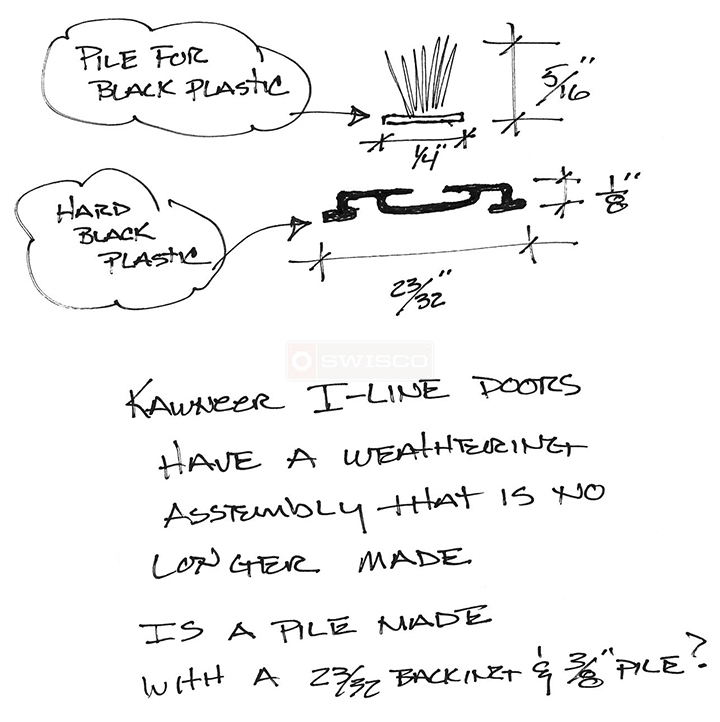 PILE FOR
BLACK PLASTIC
5/16"
1/4"
HARD
BLACK
PLASTIC
1/8"
23/32"
SWISCO
KAWNEER I-LINE DOORS
HAVE A WEATHERING
ASSEMBLY THAT IS NO
LONGER MADE
IS A PILE MADE
WITH A 23/32 BACKING & 3/8" PILE?